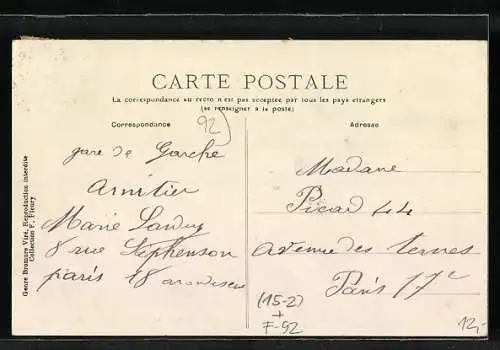 CARTE POSTALE
La correspondance au recto n'est pas acceptée par tous les pays étrangers
(se renseigner à la poste)
Correspondance
Adresse
92
gare de Garche
Amitier
Marie Landry
8 rue Stephenson
paris 18 arondisse
Madame
Picard 44
avenue des ternes
Paris 17e
(15-2)
+
F-92
12,-
Genre Bromure Vict. Reproduction interdite
Collection F. Fleury